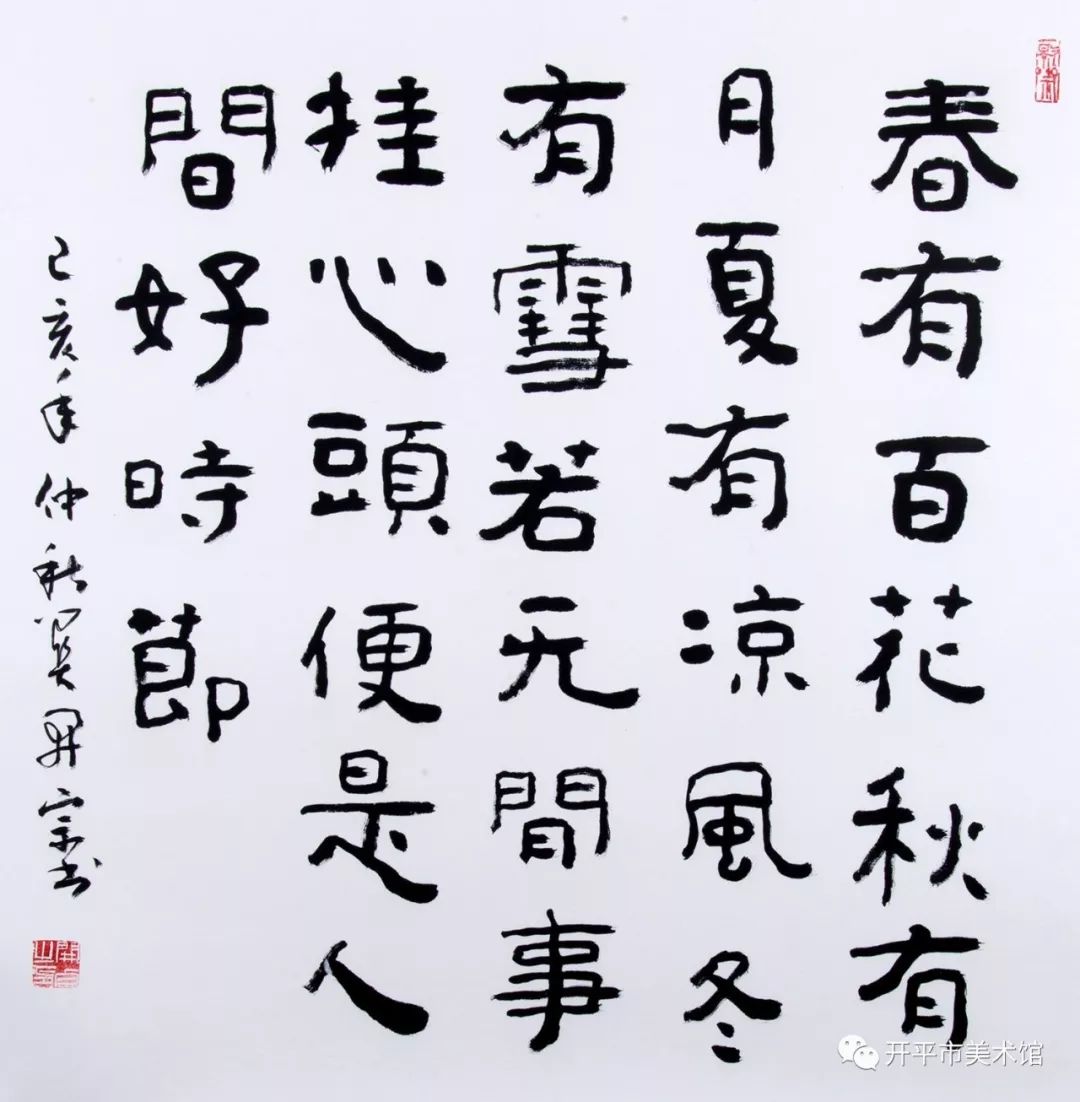 春有百花秋有
月夏有凉風冬
有雪若无閒事
挂心頭便是人
間好時節
己亥年仲秋宗书
开平市美术馆